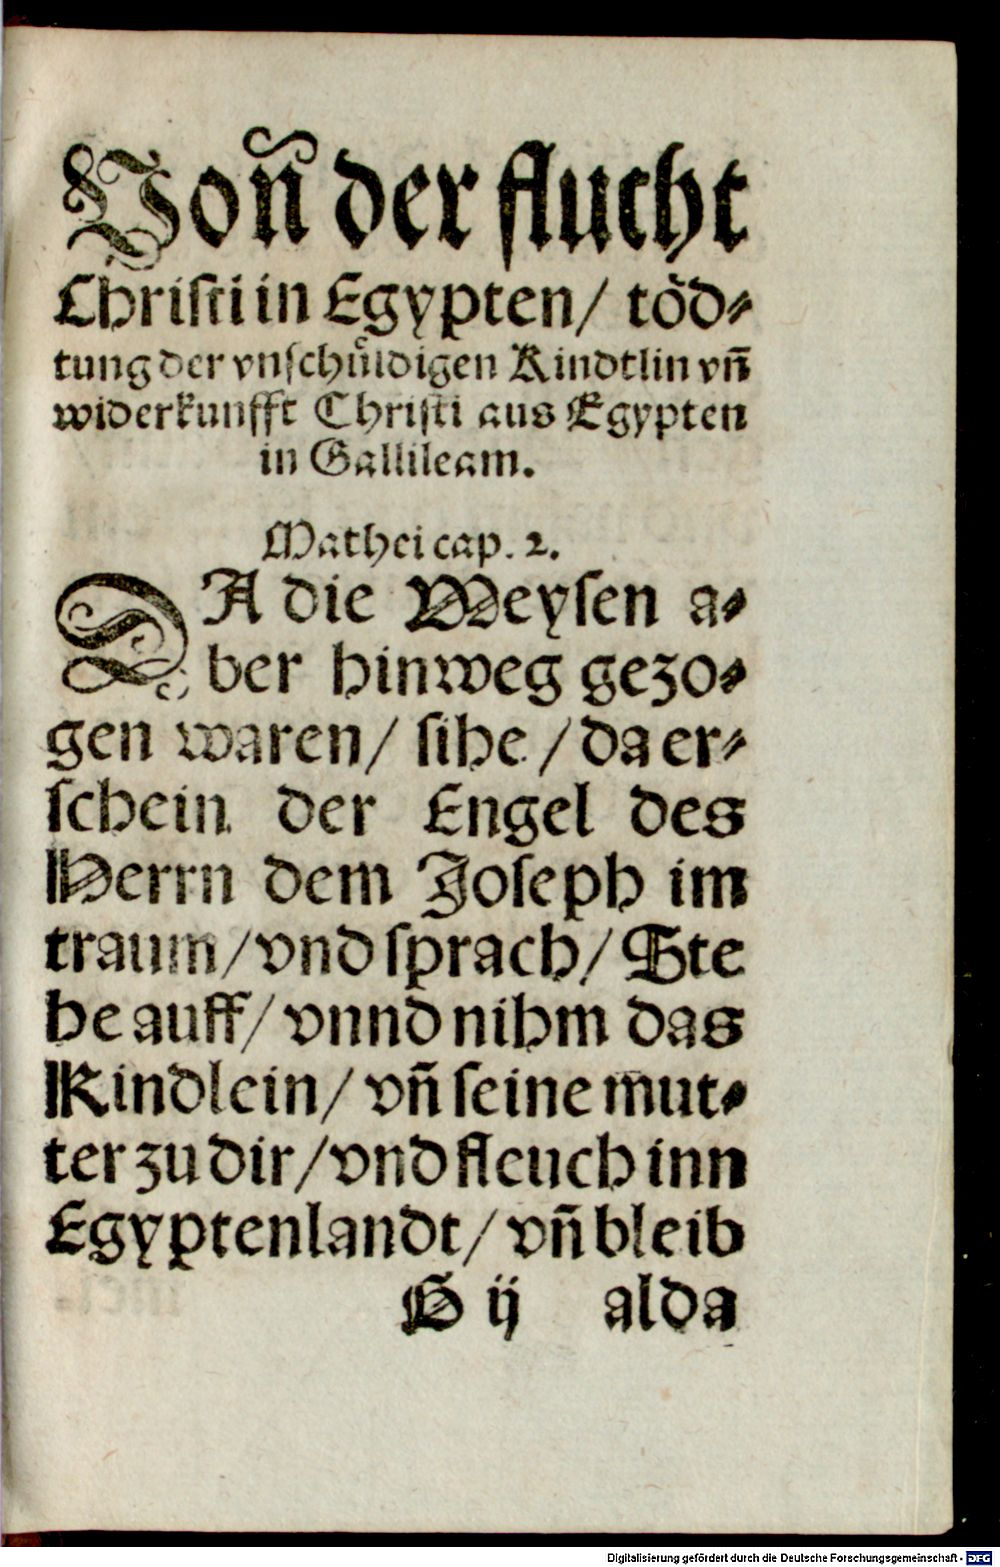 Von̄ der flucht
Christi in Egypten/ töd⸗
tung der vnschuͤldigen Kindtlin vn̄
widerkunfft Christi aus Egypten
in Gallileam.
Mathei cap. 2.
DA die Weysen a⸗
ber hinweg gezo⸗
gen waren/ sihe/ da er⸗
schein der Engel des
Herrn dem Joseph im
traum/ vnd sprach/ Ste
he auff/ vnnd nihm das
Kindlein/ vn̄ seine mut⸗
ter zu dir/ vnd fleuch inn
Egyptenlandt/ vn̄ bleib
G ij alda
Digitalisierung gefördert durch die Deutsche Forschungsgemeinschaft - DFG